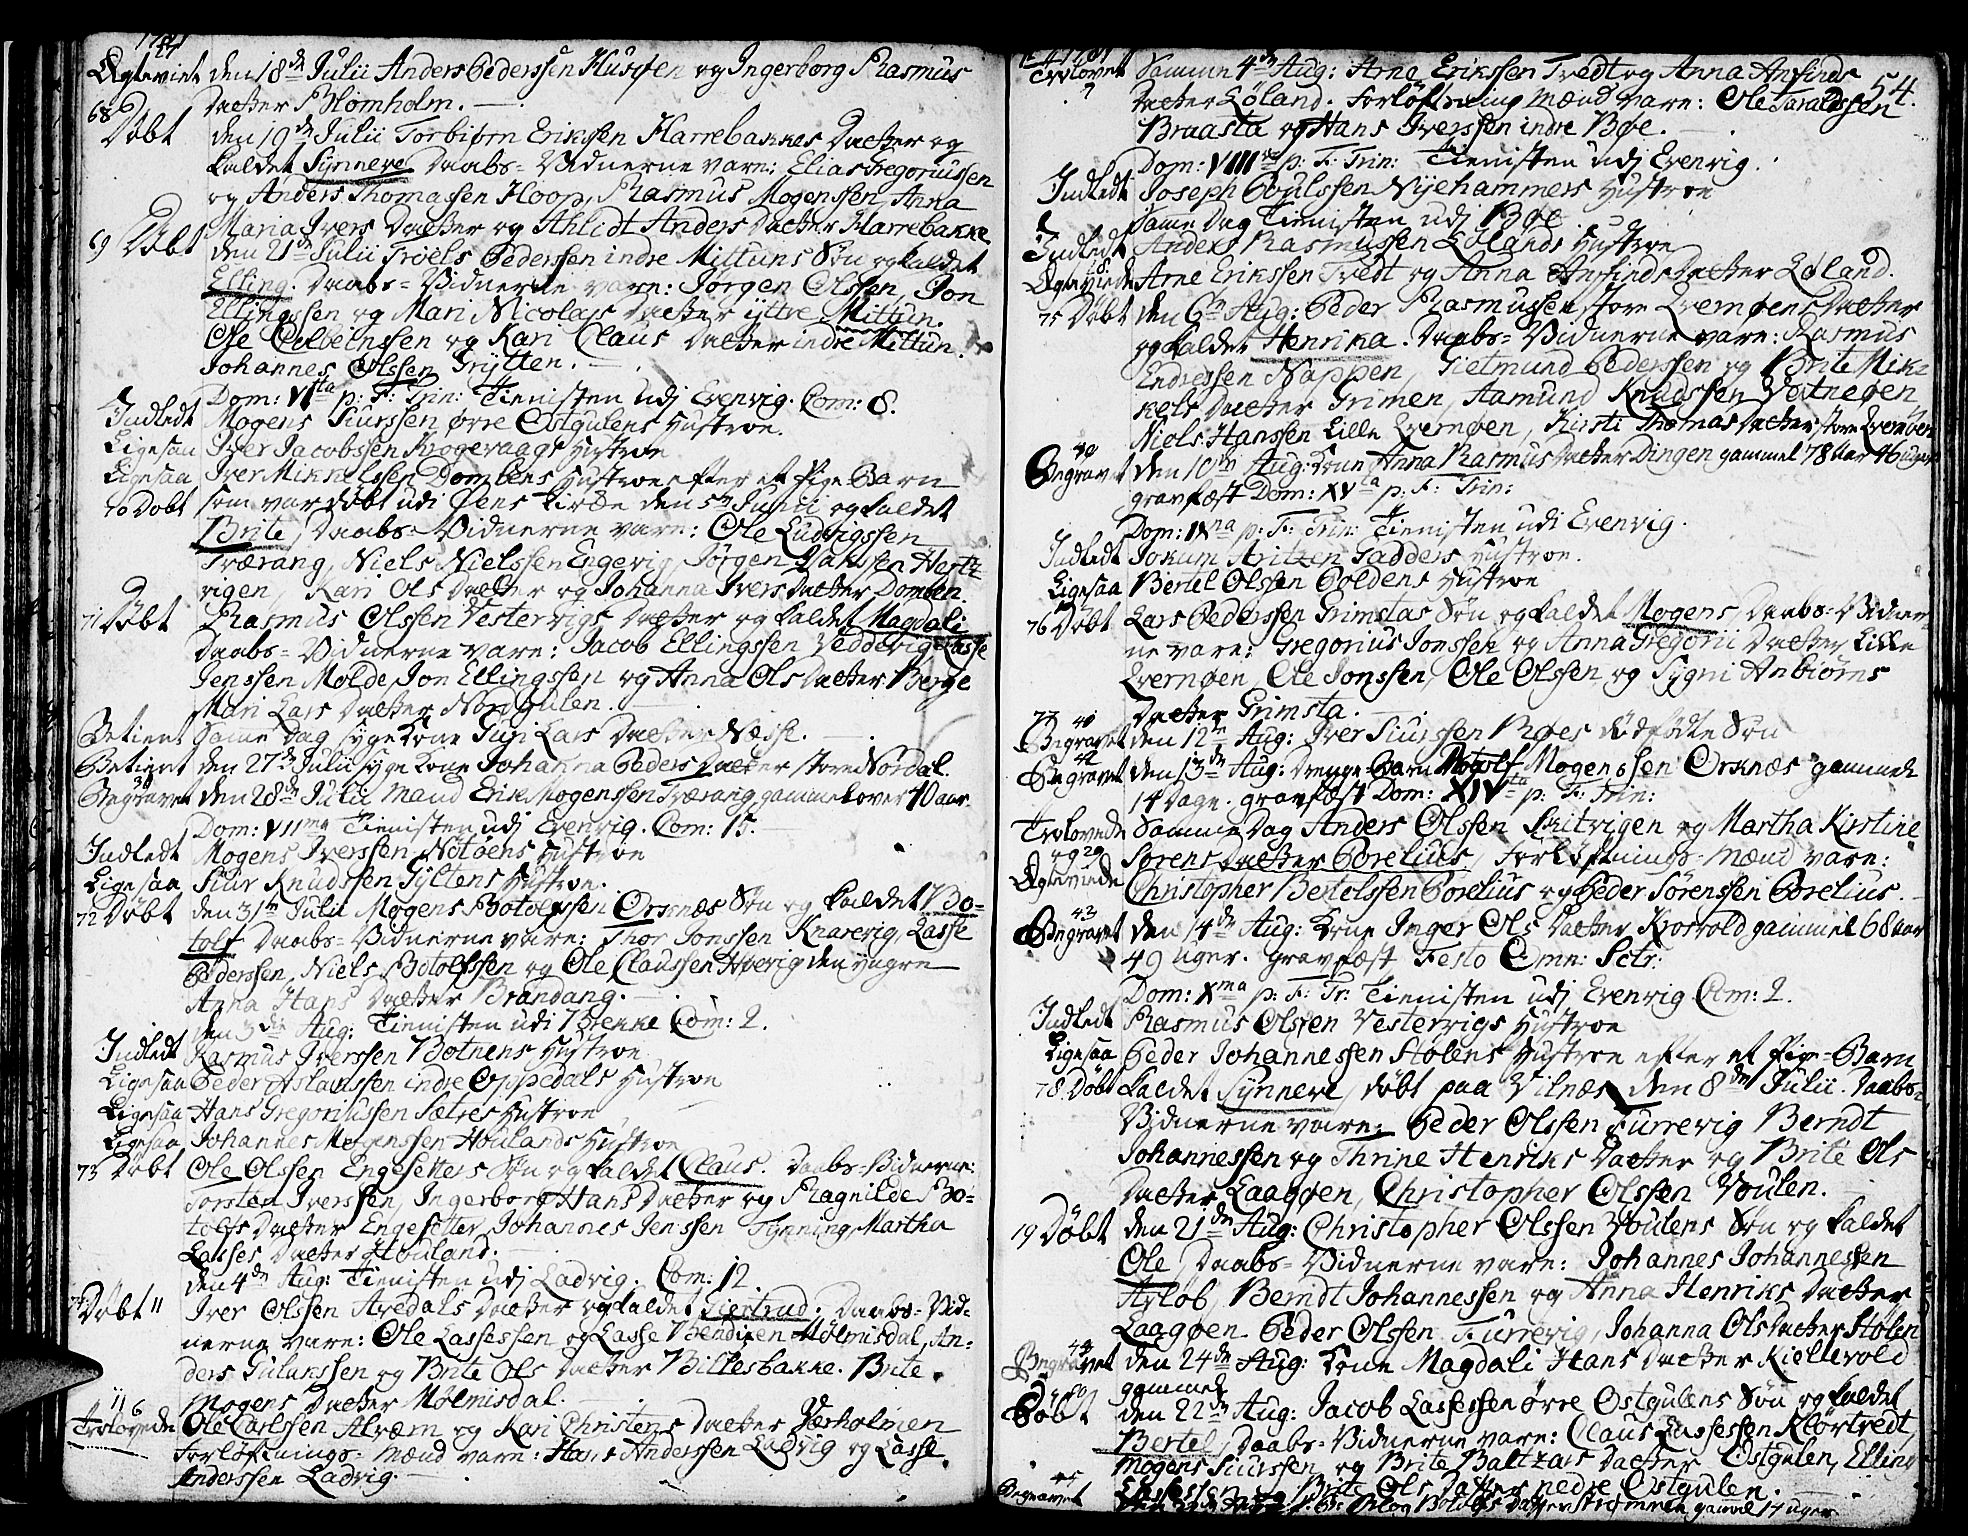 Ægteviet den 18de Julii Anders Pederssen Huusøen og Ingerborg Rasmus
Datter Blomholm.
68 Døbt den 19de Julii Torbiørn Erikssen Harrebakkes Datter og
kaldet Synneve Daabs-Vidnerne vare: Elias Gregoriussen
og Anders Thomassen Hoop, Rasmus Mogenssen, Anna
Maria Ivers Datter og Ahlidt Anders Datter Harrebakke
69 Døbt den 21de Julii Troels Pederssen indre Mittuns Søn og kaldet
Elling. Daabs-Vidnerne vare: Jørgen Olssen, Jon
Ellingssen og Mari Nicolais Datter ÿttre Mittun.
Ole Helbeinssen og Kari Claus Datter indre Mittun.
Johannes Olssen Grÿtten.
Dom: VIta p: F: Trin: Tienisten udj Evenvig. Com: 8.
Indledt Mogens Siurssen ørre Ostgulens Hustroe.
Ligesaa Iver Jacobssen Krogevaags Hustroe
Ligesaa Iver Mikkelssen Dombens Hustroe efter et Pige Barn
70 Døbt som var døbt udi Jens Kirke den 5te Junii og kaldet
Brite, Daabs-Vidnerne vare: Ole Ludvigssen
Træerang, Niels Nielssen Engevig, Jørgen Isakssen Hert
vigen, Kari Ols Datter og Johanna Ivers Datter Domben.
71 Døbt Rasmus Olssen Vestervigs Datter og kaldet Magdali
Daabs-Vidnerne vare: Jacob Ellingssen Veddevig, Lasse
Jenssen Molde, Jon Ellingssen og Anna Ols Datter Berge
Mari Lars Datter Nordgulen.
Betient Same Dag syge Kone Guri Lars Datter Næsse.
Betient den 27de Julii syge Kone Johanna Peders Datter store Nordal.
Begraven den 28de Julii Mand Erik Mogenssen Træerang gammel over 70 aar.
Dom: VIIma Tienisten udj Evenvig. Com: 15.
Indledt Mogens Iverssen Nótøens Hustroe
Ligesaa Siur Knudssen Gÿltens Hustroe.
72 Døbt den 31te Julii Mogens Botolfssen Orknæs Søn og kaldet Bo-
tolf Daabs-Vidnerne vare: Thor Jonssen Knarevig, Lasse
Pederssen, Niels Botolfssen og Ole Claussen Hverig den yngre
Anna Hans Datter Brandang.
den 3die Aug: Tienisten udi Brekke Com: 2.
Indledt Rasmus Iverssen Botnens Hustroe
Ligesaa Peder Aslakssen indre Oppedals Hustroe
Ligesaa Hans Gregoriussen Sætres Hustroe
Ligesaa Johannes Mogenssen Houlands Hustroe
73 Døbt Ole Olssen Engesetters Søn og kaldet Claus. Daabs-Vidnerne:
Torsten Iverssen, Ingerborg Hans Datter og Ragnilde Bo-
tolfs Datter Engesetter, Johannes Jenssen Tÿnning, Martha
Lasses Datter Houland.
den 4de Aug: Tienisten udj Ladvig. Com: 12
Døbt Iver Olssen Avedals Datter og kaldet Giertrud. Daabs-Vid-
nerne vare: Ole Lassessen og Lasse Bendixen Holmisdal, An-
ders Gulakssen og Brite Ols Datter Billesbakke. Brite
Mogens Datter Holmisdal.
Trolovede Ole Carlssen Alræm og Kari Christens Datter Væsholmen
Forløftnings-Mænd vare: Hans Anderssen Ladvig og Lasse
Anderssen Ladvig.
54.
Trolovet Samme 4de Aug: Arne Erikssen Tvedt og Anna Anfinds
Datter Løland. Forløftning Mænd vare: Ole Taraldssen
Braasta og Hans Iverssen indre Bøe.
Dom: VIIIva p: F: Trin: Tienisten udj Evenvig.
Indledt Joseph Poulssen Nÿehammers Hustroe
Same Dag Tienisten udj Bøe
Indledt Anders Rasmussen Lølands Hustroe
Ægteviede Arne Erikssen Tvedt og Anna Anfinds Datter Løland.
75 Døbt den 6te Aug: Peder Rasmussen store Evernøens Datter
og kaldet Henrika. Daabs-Vidnerne vare: Rasmus
Endressen Nappen, Gietmund Pederssen og Brite Mik-
kels Datter Grimen, Aamund Knudssen Vatneøen,
Niels Hanssen Lille Evernøen, Kirsti Thomas Datter store Evernøen
40 Begravet den 10de Aug: Kone Anna Rasmus Datter Dingen gammel 78 Aar 16 uger
gravfæst Dom: XVta p: F: Trin:
Dom: IXna p: F: Trin: Tienisten udi Evenvig.
Indledt Jokum Fritzen Gadders Hustroe.
Ligesaa Bertel Olssen Poldens Hustroe
76 Døbt Lars Pederssen Grimstas Søn og kaldet Mogens, Daabs-Vidner-
ne vare: Gregorius Jonssen og Anna Gregorii Datter Lille
Evernøen, Ole Jonssen, Ole Olssen og Sygni Anbiørns
Datter Grimsta.
77 41 Begravet den 12te Aug: Iver Siurssen Bøes dødfødte Søn
42 Begravet den 13de Aug: Drenge-Barn Botolf Mogenssen Orknæs gammel
14 Dage. gravfæst Dom: XIVta p: F: Trin:
Trolovede Samme Dag Anders Olssen Skitvigen og Martha Kirstine
og Ægteviede Sørens Datter Borelius, Forløftnings-Mænd vare:
Christopher Bertelssen Borelius og Peder Sørenssen Borelius.
43 Begravet den 14de Aug: Kone Inger Ols Datter Krosvold gammel 68 aar
49 Uger. gravfæst Festo Omn: Sctr:
Dom: Xma p: F: Tr: Tienisten udj Evenvig Com: 2.
Indledt Rasmus Olssen Vestervigs Hustroe
Ligesaa Peder Johannessen Stølens Hustroe efter et Pige-Barn
78 Døbt kaldet Synneve, døbt paa Vilnæs den 8de Julii. Daabs-
Vidnerne vare: Peder Olssen Furrevig Berndt
Johannessen og Thrine Henriks Datter og Brite Ols
Datter Laagøen, Christopher Olssen Voulen.
79 Døbt den 21de Aug: Christopher Olssen Voulens Søn og kaldet
Ole, Daabs-Vidnerne vare: Johannes Johannessen
Arløb, Berndt Johannessen og Anna Henriks Datter
Laagøen. Peder Olssen Furrevig, Johanna Ols Datter Stølen
44 Begravet den 24de Aug: Kone Magdali Hans Datter Kiellevold
gammel
80 Døbt den 22de Aug: Jacob Lassessen ørre Ostgulens Søn og kaldet
Bertel, Daabs-Vidnerne vare: Claus Lassessen Kløvtvedt,
Mogens Siurssen og Brite Baltzars Datter Ostgulen, Elling
Lassessen og Brite Ols Datter nedre Ostgulen.
45 Begravet Botolfs Datter Strømmen gammel 14 uger